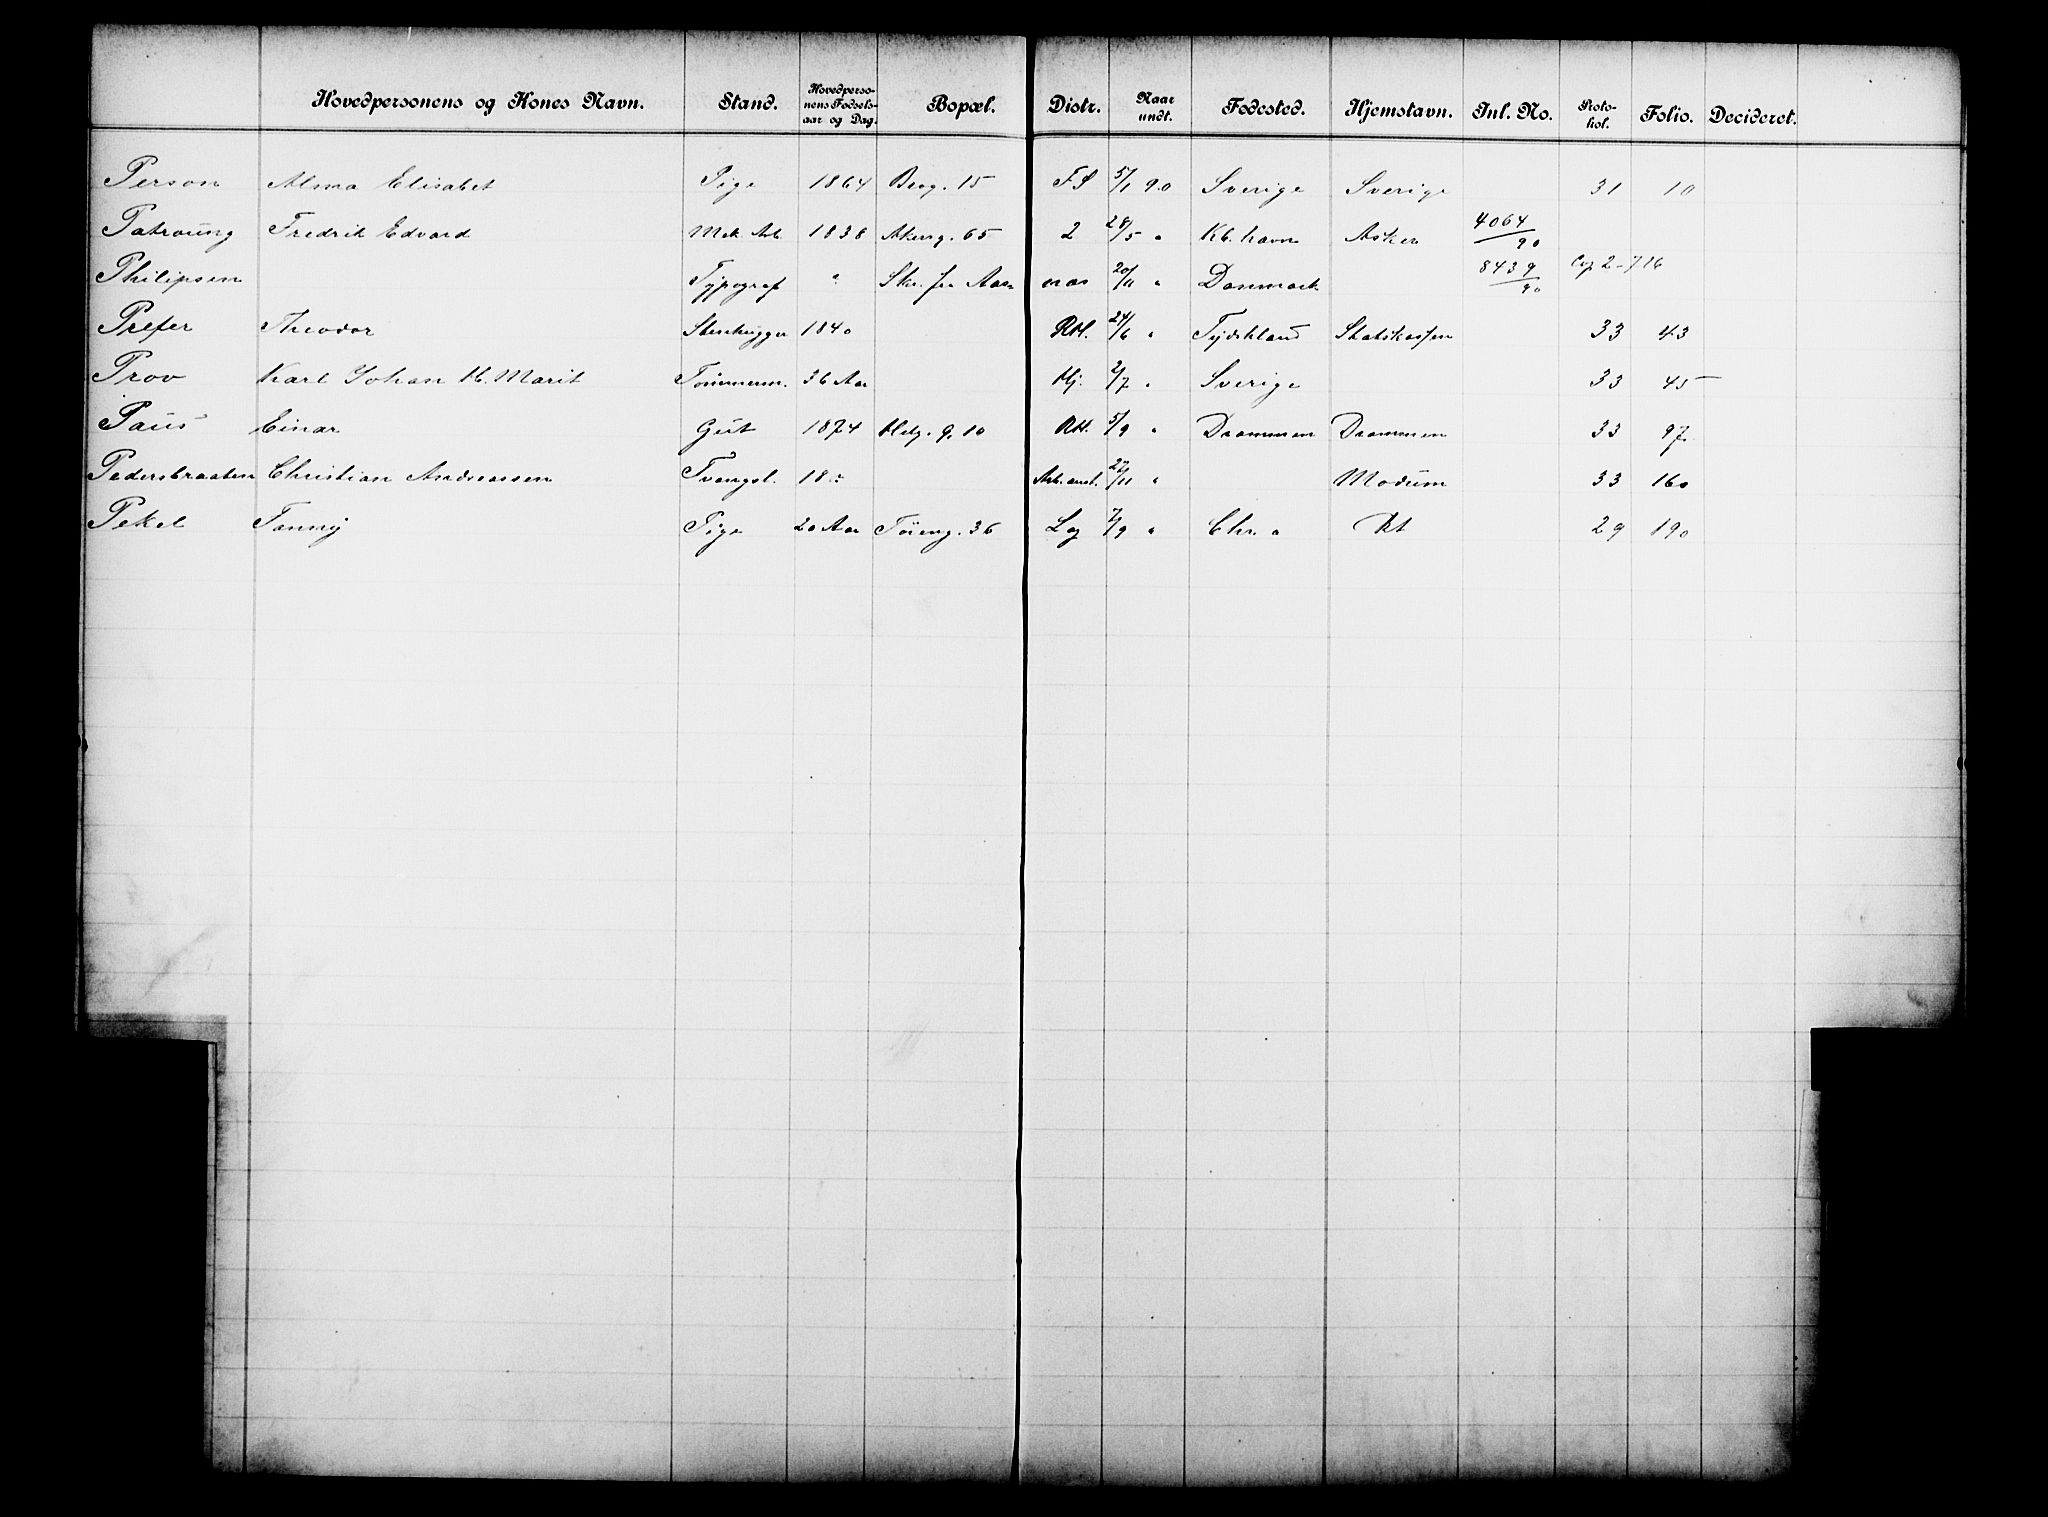 Hovedpersonens og Kones Navn. Stand. Hovedpersonens Fødselsaar og Dag. Bopæl. Distr. Naar undt. Fødested. Hjemstavn. Inl. No. Protokol. Folio. Decideret.
Person Alma Elisabet Pige 1864 Berg. 15 FS 5/1 90 Sverige Sverige 31 10
Patroung Fredrik Edvard Mek. Arb. 1838 Akersg. 65 2 28/5 " Kb.havn Asker 4064/90
Philipsen Typograf " Skr. fra Aasnæs 20/11 " Danmark 8439/90 Cop 2-716
Prefer Theodor Stenhugger 1840 RH. 24/6 " Tydskland Statskassen 33 43
Prov Karl Johan K. Marit Tømmerm. 36 Aar Hj. 2/7 " Sverige 33 45
Paus Einar Gut 1874 Helg. g. 10 RH. 5/9 " Drammen Drammen 33 97
Pedersbraaten Christian Andreassen Tvangsl. 18 Arb.anst. 27/11 " Modum 33 160
Pekel Fanny Pige 20 Aar Tøieng. 36 Lg 7/9 " Chr.a Kt 29 190